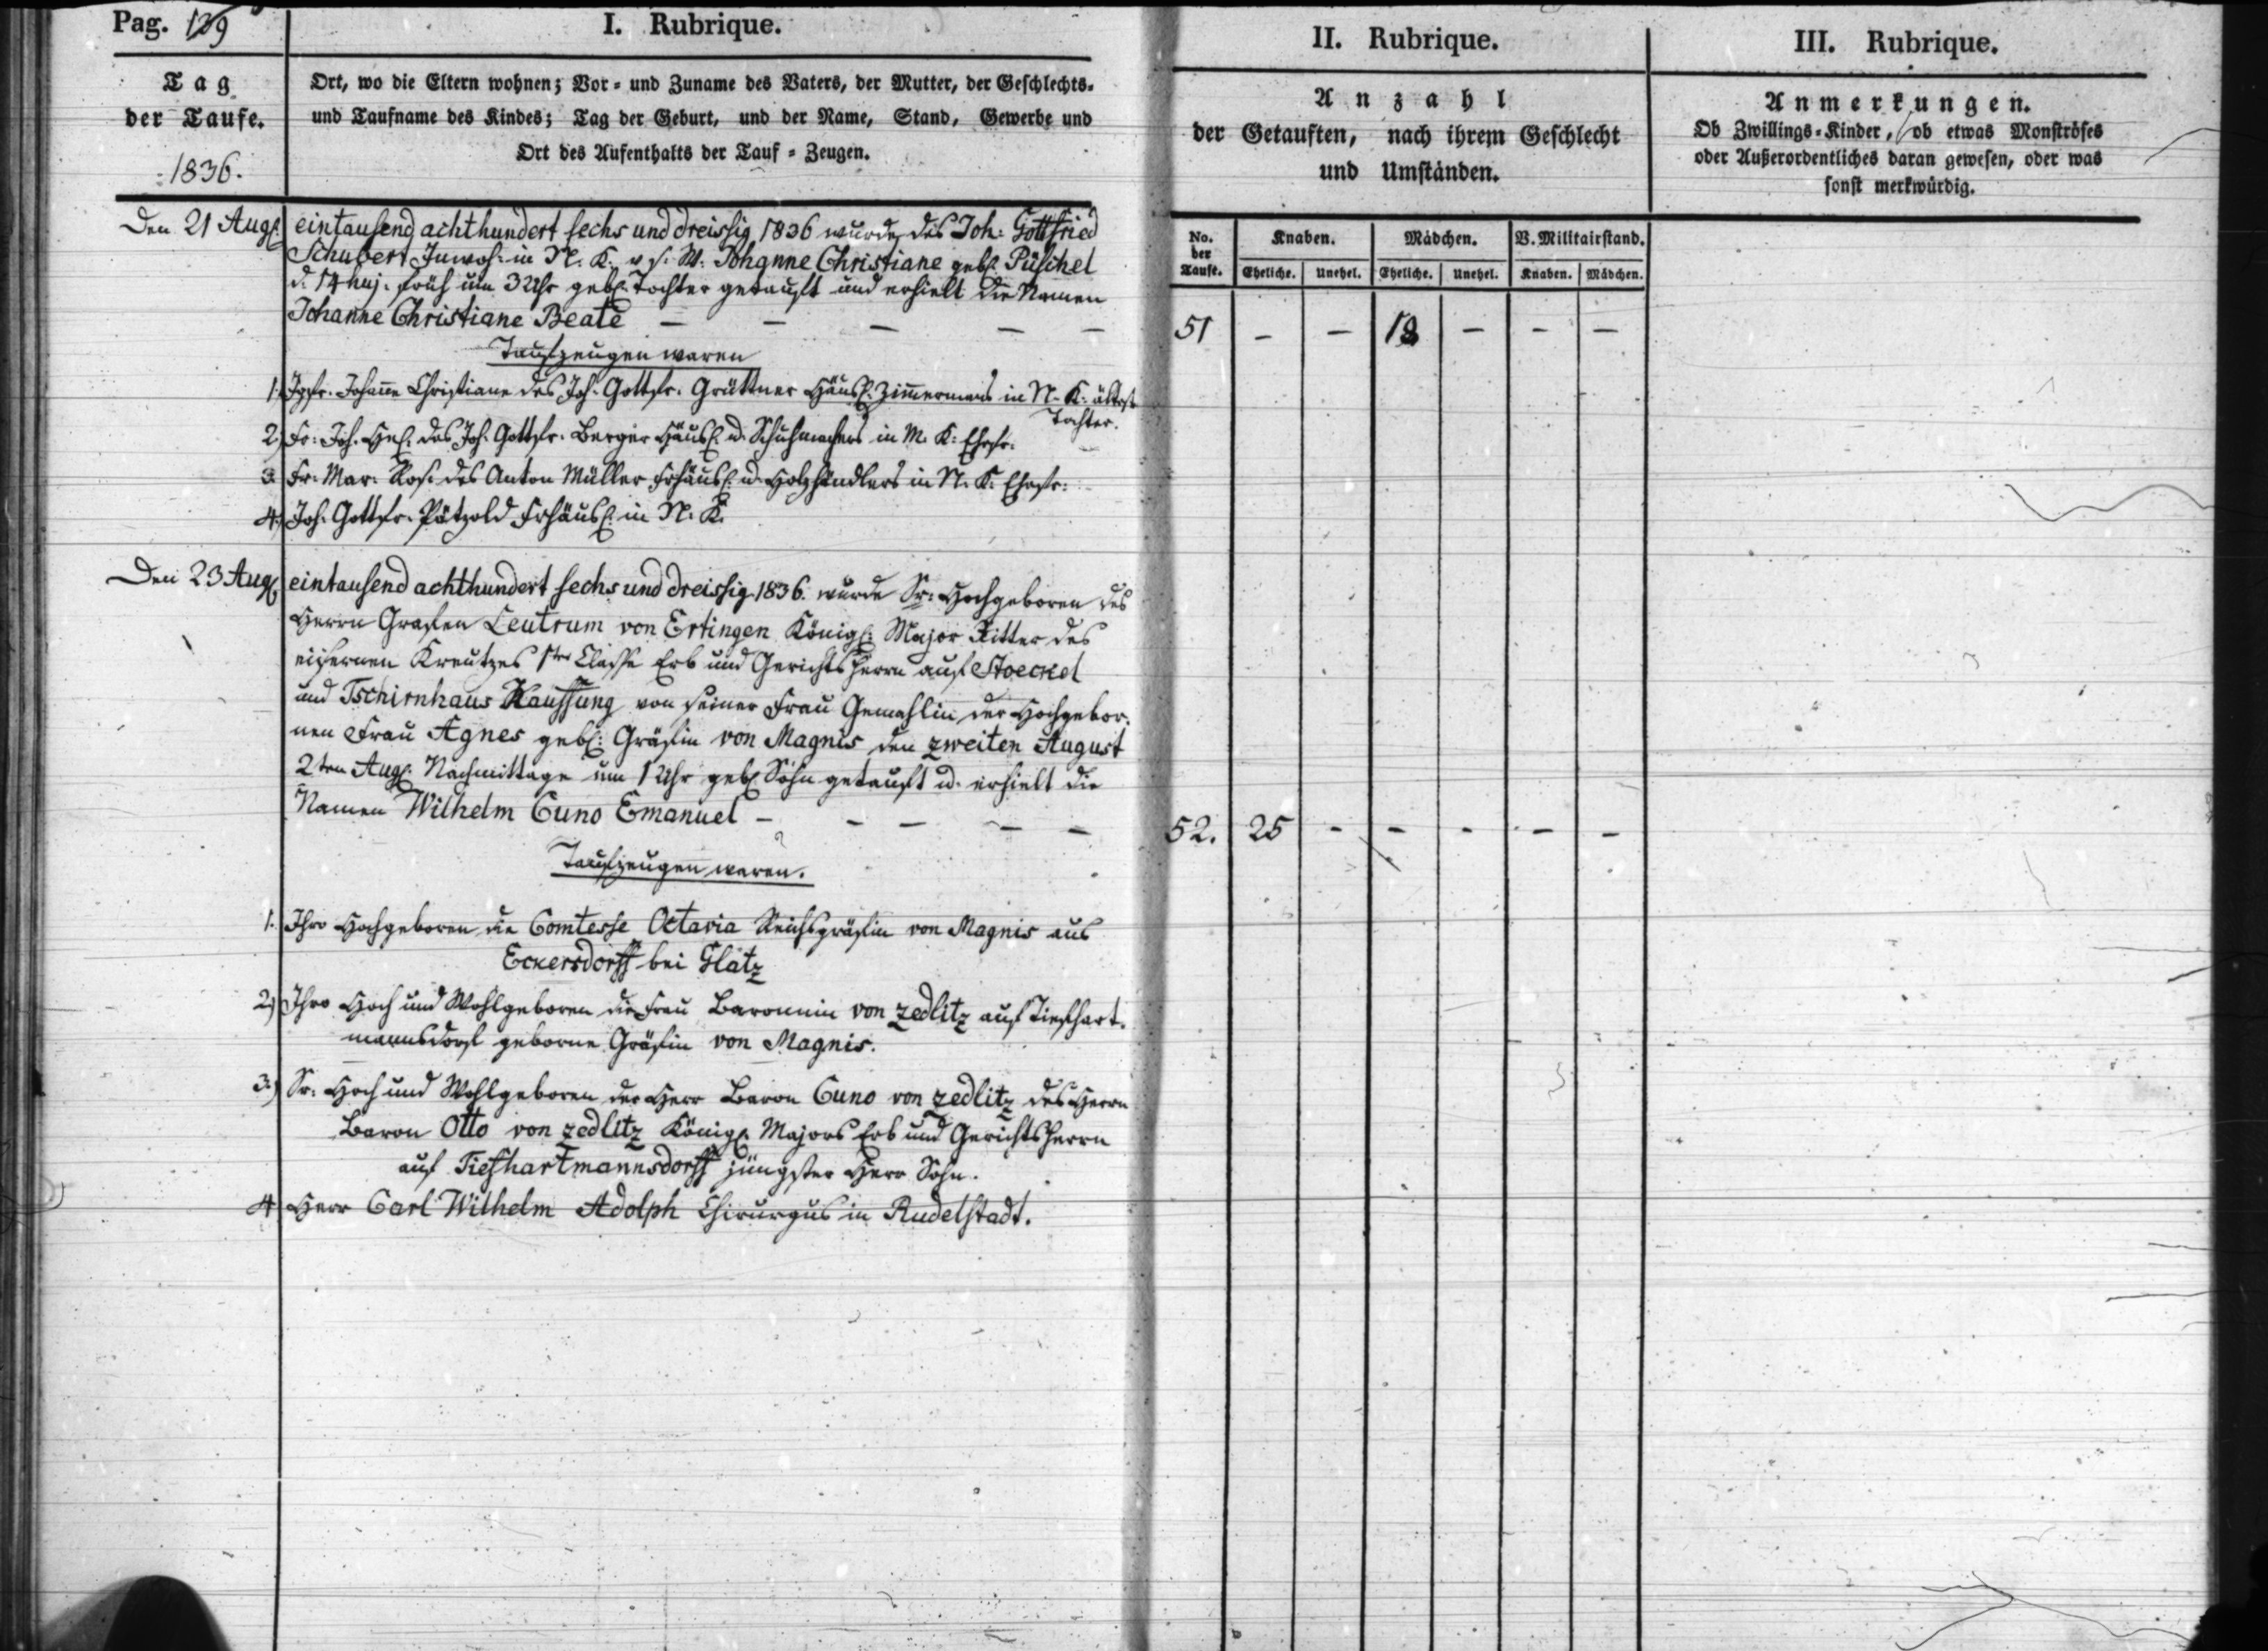 Pag. 139
I. Rubrique.
II. Rubrique.
III. Rubrique.
Tag
der Taufe.
1836.
Ort, wo die Eltern wohnen; Vor- und Zuname des Vaters, der Mutter, der Geschlechts-
und Taufname des Kindes; Tag der Geburt, und der Name, Stand, Gewerbe und
Ort des Aufenthalts der Tauf-Zeugen.
Anzahl
der Getauften, nach ihrem Geschlecht
und Umständen.
Anmerkungen.
Ob Zwillings-Kinder, ob etwas Monströses
oder Außerordentliches daran gewesen, oder was
sonst merkwürdig.
No. der Taufe.
Knaben. Mädchen. V. Militairstand.
Eheliche. Unehel. Eheliche. Unehel. Knaben. Mädchen.
Den 21 Aug. eintausend achthundert sechs und dreissig 1836 wurde des Joh. Gottfried
Schubert Inwoh. in N. K. v. s. W. Johanne Christiane geb. Püschel
d. 14 huj. früh um 3 Uhr geb. Tochter getauft und erhielt die Namen
Johanne Christiane Beate — — — — —
51 — — 18 — — —
Taufzeugen waren
1. Jgfr. Johanne Christiane des Joh. Gottfr. Grüttner Häusl. Zimmermans in N. K. älteste
Tochter.
2) Fr. Joh. Hel. des Joh. Gottfr. Berger Häusl. u. Schuhmachers in M. K. Ehefr.
3. Fr. Mar. Ros. des Anton Müller Frhäusl. u. Holzhändlers in N. K. Ehefr.
4.) Joh. Gottfr. Pätzold Frhäusl. in N. K.
Den 23 Aug. eintausend achthundert sechs und dreissig 1836. wurde Sr. Hochgeboren des
Herrn Grafen Leutrum von Ertingen Königl. Major Ritter des
eisernen Kreutzes 1ter Classe Erb und Gerichtsherrn auf Stoeckel
und Tschirnhaus Kauffung von seiner Frau Gemahlin der Hochgebor-
nen Frau Agnes geb. Gräfin von Magnis den zweiten August
2ten Aug. Nachmittage um 1 Uhr geb. Sohn getauft u. erhielt die
Namen Wilhelm Cuno Emanuel — — — — —
52. 25 - - - - -
Taufzeugen waren.
1. Ihro Hochgeboren die Comtesse Octavia Reichsgräfin von Magnis aus
Eckersdorff bei Glatz
2) Ihro Hoch und Wohlgeboren die Frau Baronnin von Zedlitz auf Tiefhart-
mannsdorf geborne Gräfin von Magnis.
3.) Sr. Hoch und Wohlgeboren der Herr Baron Cuno von Zedlitz des Herrn
Baron Otto von Zedlitz Königl. Majors Erb und Gerichtsherrn
auf Tiefhartmannsdorff jüngster Herr Sohn.
4 Herr Carl Wilhelm Adolph Chirurgus in Rudelstadt.